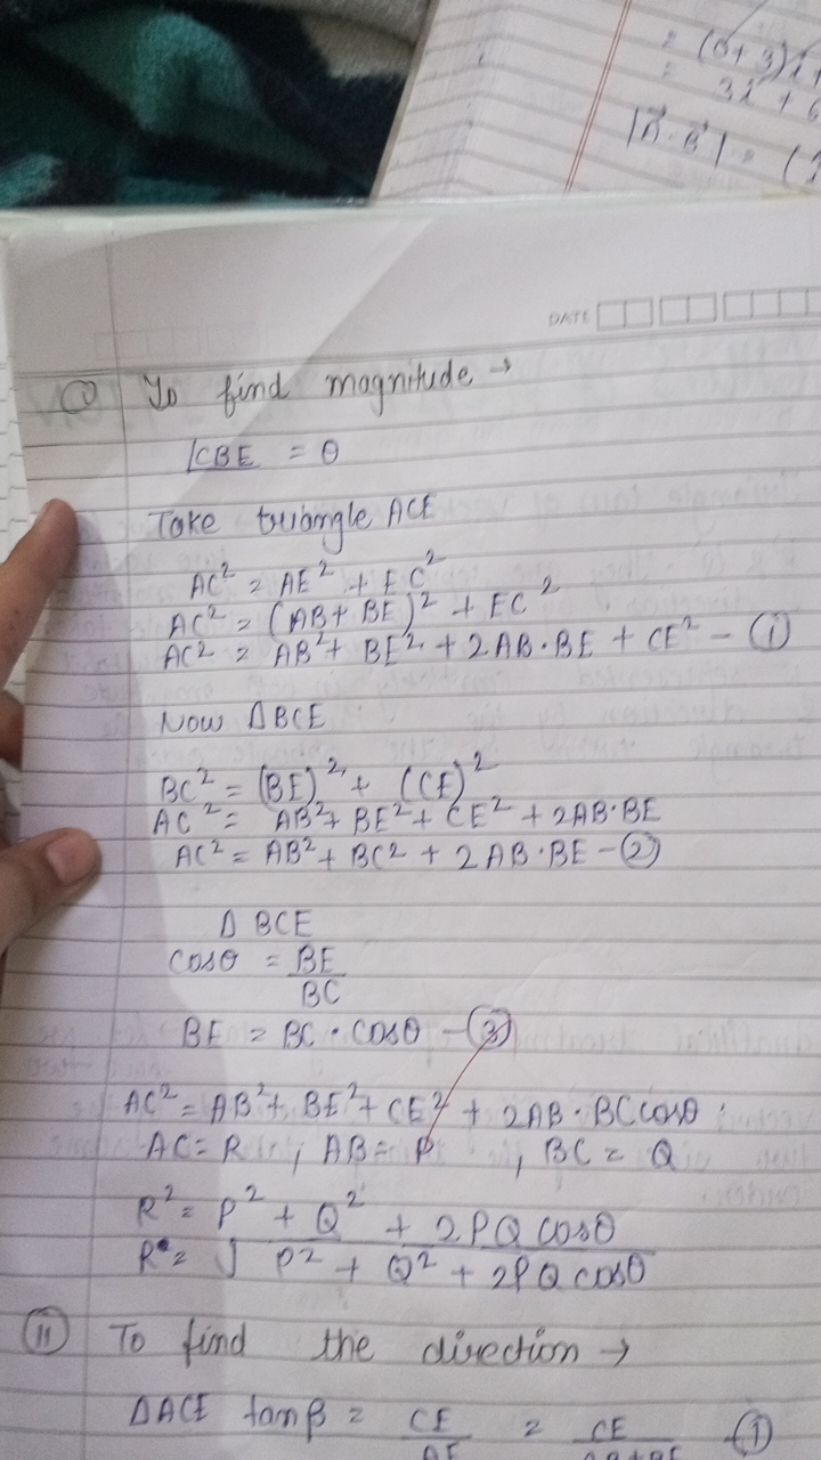 = (0+3)i+
= 3i + 6
|A⃗·B⃗| = (
DATE
(i) To find magnitude →
∠CBE = θ
Take triangle ACE
AC² = AE² + EC²
AC² = (AB + BE)² + EC²
AC² = AB² + BE² + 2AB·BE + CE² – ①
Now ΔBCE
BC² = (BE)² + (CE)²
AC² = AB² + BE² + CE² + 2AB·BE
AC² = AB² + BC² + 2AB·BE – ②
Δ BCE
cosθ = BE/BC
BE = BC · cosθ – ③
AC² = AB² + BE² + CE² + 2AB·BC cosθ
AC = R , AB = P , BC = Q
R² = P² + Q² + 2PQ cosθ
R = √P² + Q² + 2PQ cosθ
(ii) To find the direction →
ΔACE tanβ = CE/AE = CE/AB+BE – ①